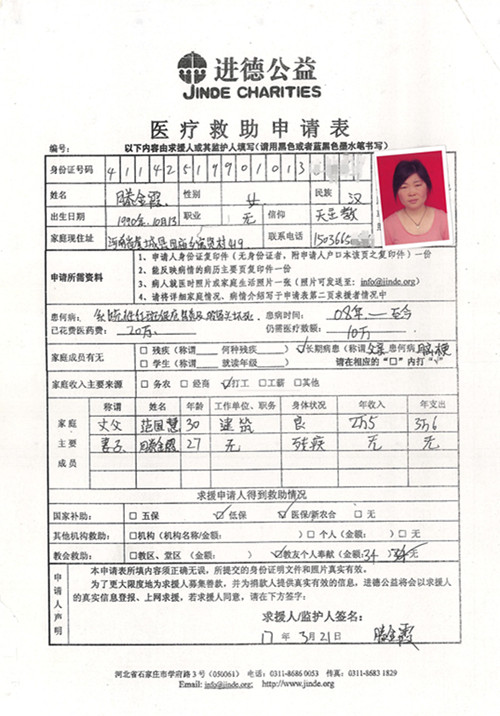 进德公益
JINDE CHARITIES
医疗救助申请表
编号: 以下内容由求援人或其监护人填写(请用黑色或者蓝黑色墨水笔书写)
身份证号码 4 1 1 4 2 5 1 9 9 0 1 0 1 3
姓名 滕金霞 性别 女 民族 汉
出生日期 1990年10月13 职业 无 信仰 天主教
家庭现住址 河南省虞城县 村419 联系电话 1503665
申请所需资料
1、申请人身份证复印件(无身份证者,附申请人户口本该页之复印件)一份
2、能反映病情的病历主要页复印件一份
3、病人就医时照片或家庭生活照片一张(照片可发送至: info@jinde.org)
4、请将详细家庭情况、病情介绍写于申请表第二页求援者情况中
患何病: 患病时间: 08年—至今
已花费医药费: 20万 仍需医疗数额: 10万
家庭成员有无 □残疾(称谓 何种残疾 ) ☑长期病患(称谓父亲患何病脑梗
□学生(称谓 就读年级 ) 请在相应的“□”内打“√”
家庭收入主要来源 □务农 □经商 ☑打工 □工薪 □其他
家庭主要成员
称谓 姓名 年龄 工作单位、职务 身体状况 年收入 年支出
丈夫 范国慧 30 建筑 良 2万5 3万6
妻子 滕金霞 27 无 残疾 无 无
求援申请人得到救助情况
国家补助: □五保 ☑低保 ☑医保/新农合 □无
其他机构救助: □机构(机构名称/金额: ) □个人(金额: ) □无
教会救助: □教区、堂区(金额: ) ☑教友个人奉献(金额: 无
申请人声明
本申请表所填内容须正确无误,所提交的身份证明文件和照片真实有效。
为了更大限度地为求援人募集善款,并为捐款人提供真实有效的信息,进德公益将会以求援人
的真实信息登报、上网求援,若求援人同意,请在下方签字:
求援人/监护人签名:
17 年 3月21日 滕金霞
河北省石家庄市学府路3号(050061) 电话: 0311-8686 0053 传真: 0311-8683 1829
Email: info@jinde.org; http://www.jinde.org